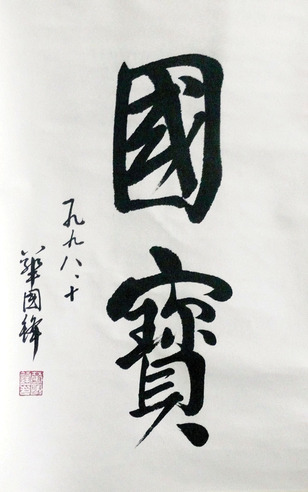 國寶
一九九八、十
華國鋒